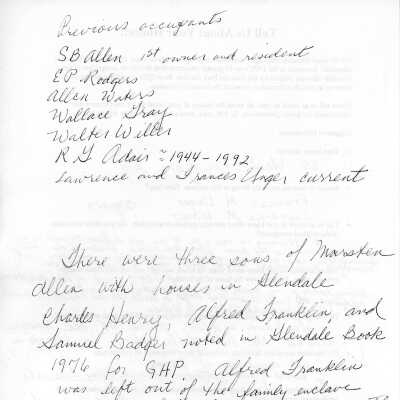 Previous occupants
SB Allen 1st owner and resident
EP Rodgers
Allen Waters
Wallace Gray
Walter Willer
R G Adair ~ 1944-1992
Lawrence and Frances Unger current
There were three sons of Marsten
Allen with houses in Glendale
Charles Henry, Alfred Franklin, and
Samuel Badger noted in Glendale Book
1976 for GHP Alfred Franklin
was left out of the family enclave